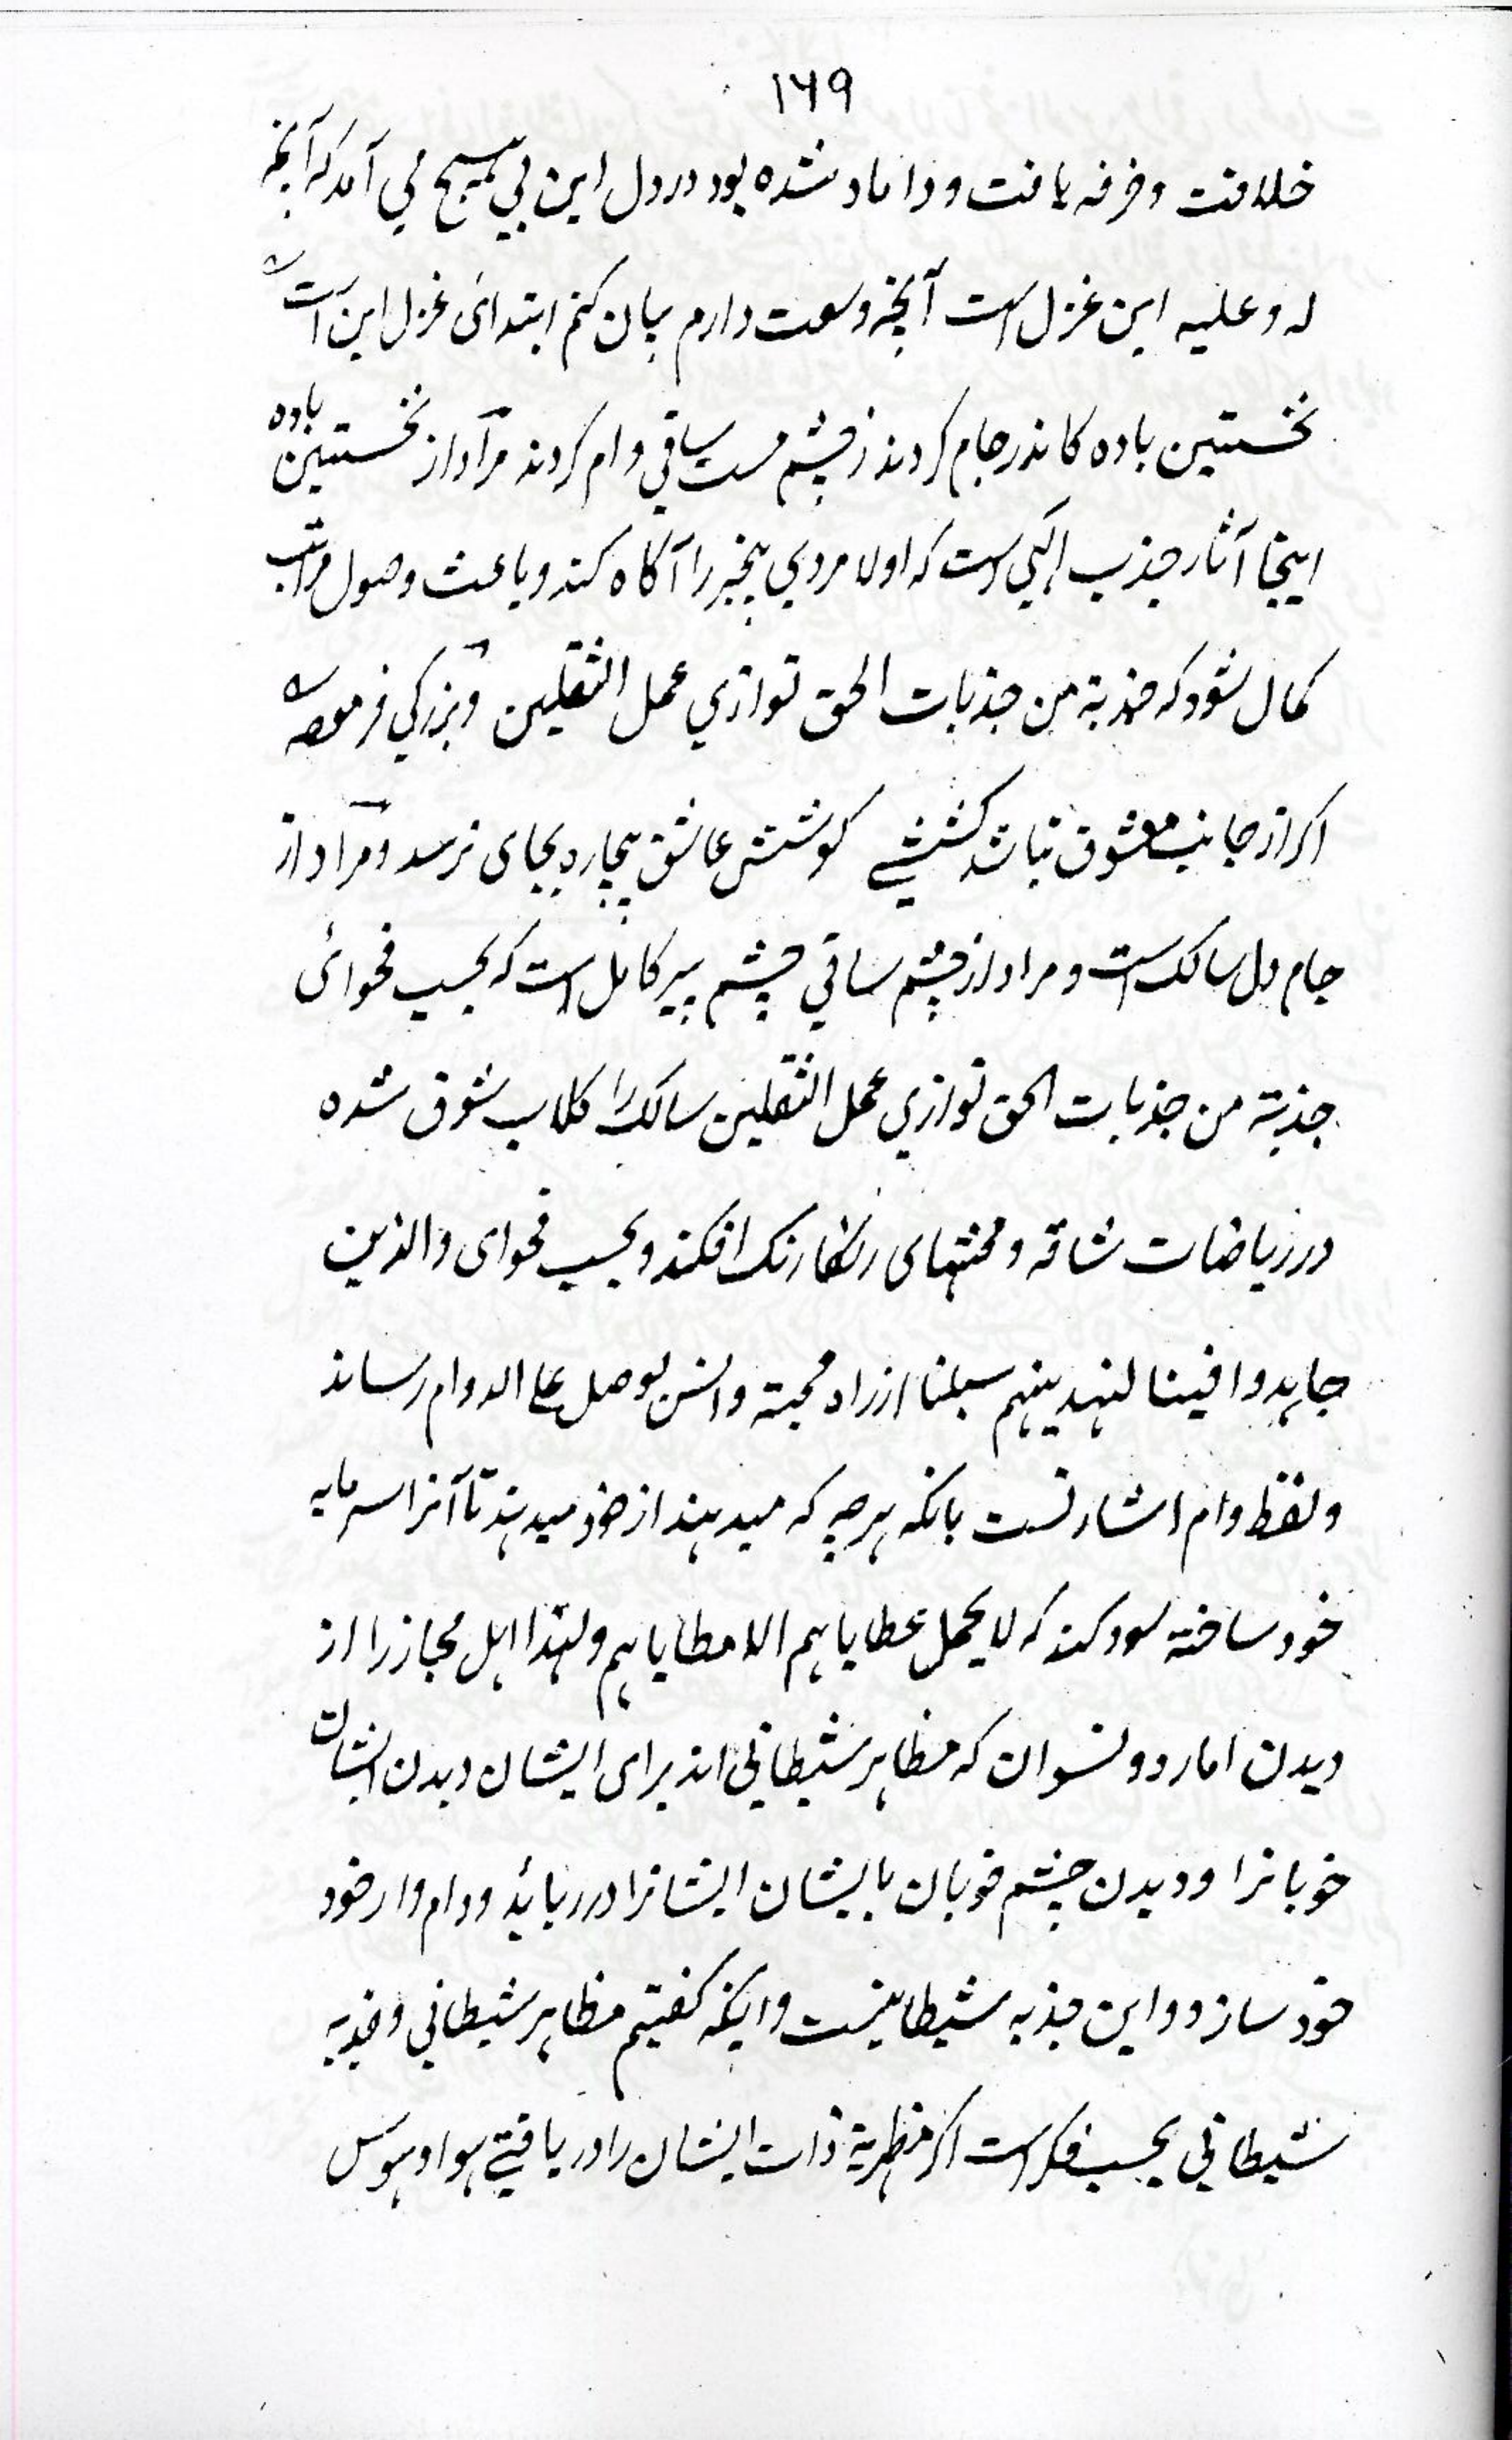 ۱۶۹
خلافت و خرقه یافت و داماد شده بود در دل این بی هیچ می آمد که آنچه
له و علیه این غزل است آنچه وسعت دارم بیان کنم ابتدائ غزل این است
نخستین باده کاندر جام کردند ز چشم مست ساقی وام کردند مراد از نخستین باده
اینجا آثار جذب الهی است که اولا مردی بیخبر را آگاه کند و باعث وصول مراتب
کمال شود که جذبة من جذبات الحق توازي عمل الثقلین و بزرگی فرموده
اکر از جانب معشوق نباشد کششے کوشش عاشق بیچاره بجای نرسد و مراد از
جام دل سالک است و مراد از چشم ساقی چشم پیر کامل است که بحسب فحوائ
جذبة من جذبات الحق توازي عمل الثقلین سالک را کلاب شوق شده
در ریاضات شاقه و محنتهای رنکارنک افکند و بحسب فحوای والذین
جاهدوا فینا لنهدینهم سبلنا از راه محبة و انس بوصل علی الدوام رساند
و لفظ وام اشارتست بانکه هرچه که میدهند از خود میدهند تا آنرا سرمایه
خود ساخته سود کند که لا یحمل عطایاهم الا مطایاهم و لهذا اهل مجاز را از
دیدن امارد و نسوان که مظاهر شیطانی اند برای ایشان دیدن ایشان
خوبانرا و دیدن چشم خوبان بایشان ایشانرا در رباید و دام وار خود
خود سازد و این جذبه شیطانیست و اینکه کفتیم مظاهر شیطانی و جذبه
شیطانی بحسب فکر است اکر مظهریة ذات ایشان را دریافتے هوا و هوس